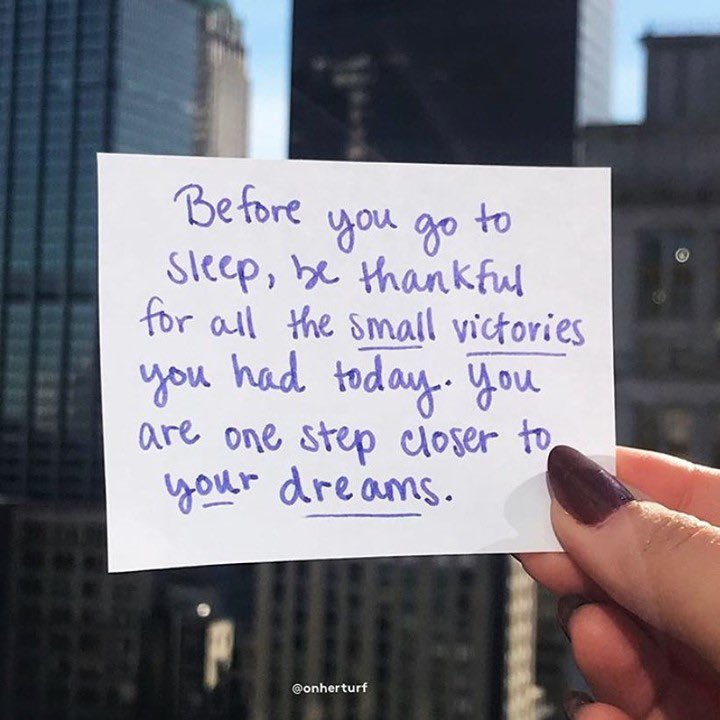 Before you go to
sleep, be thankful
for all the small victories
you had today. you
are one step closer to
your dreams.
@onherturf